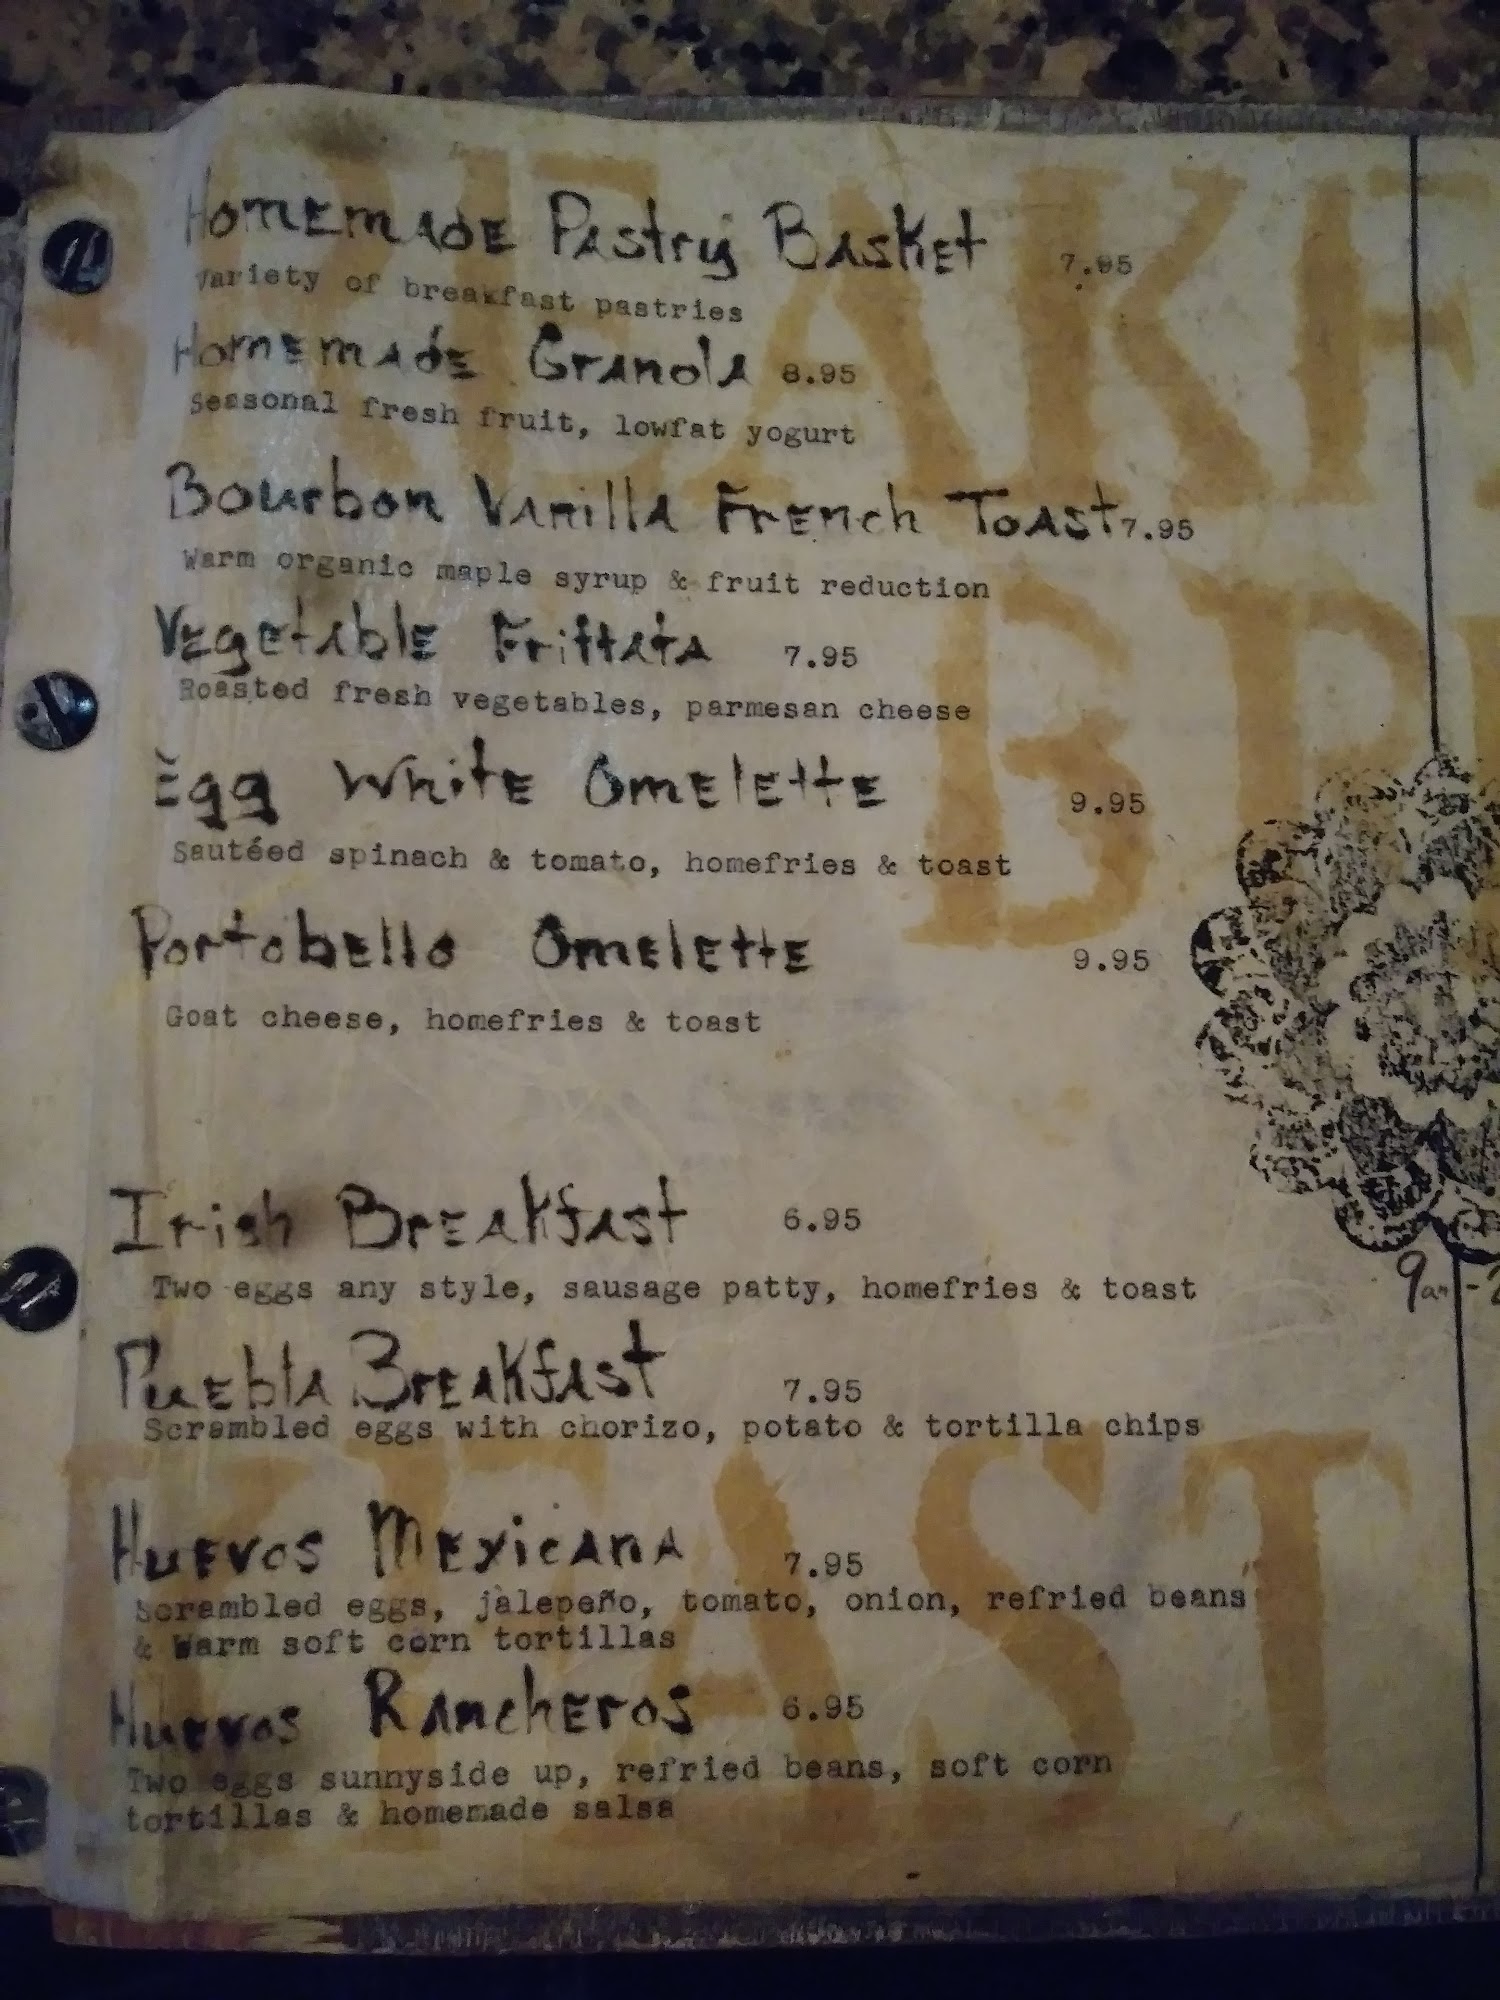 Homemade Pastry Basket 7.95
Variety of breakfast pastries
Homemade Granola 8.95
Seasonal fresh fruit, lowfat yogurt
Bourbon Vanilla French Toast 7.95
Warm organic maple syrup & fruit reduction
Vegetable Frittata 7.95
Roasted fresh vegetables, parmesan cheese
Egg White Omelette 9.95
Sautéed spinach & tomato, homefries & toast
Portobello Omelette 9.95
Goat cheese, homefries & toast
Irish Breakfast 6.95
Two eggs any style, sausage patty, homefries & toast
9am-2
Puebla Breakfast 7.95
Scrambled eggs with chorizo, potato & tortilla chips
Huevos Mexicana 7.95
Scrambled eggs, jalepeño, tomato, onion, refried beans
& Warm soft corn tortillas
Huevos Rancheros 6.95
Two eggs sunnyside up, refried beans, soft corn
tortillas & homemade salsa